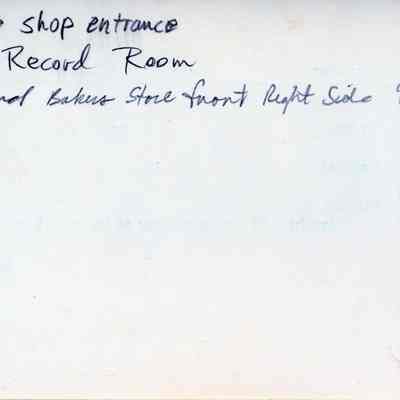 shop entrance
Record Room
Bakers Store front Right Side